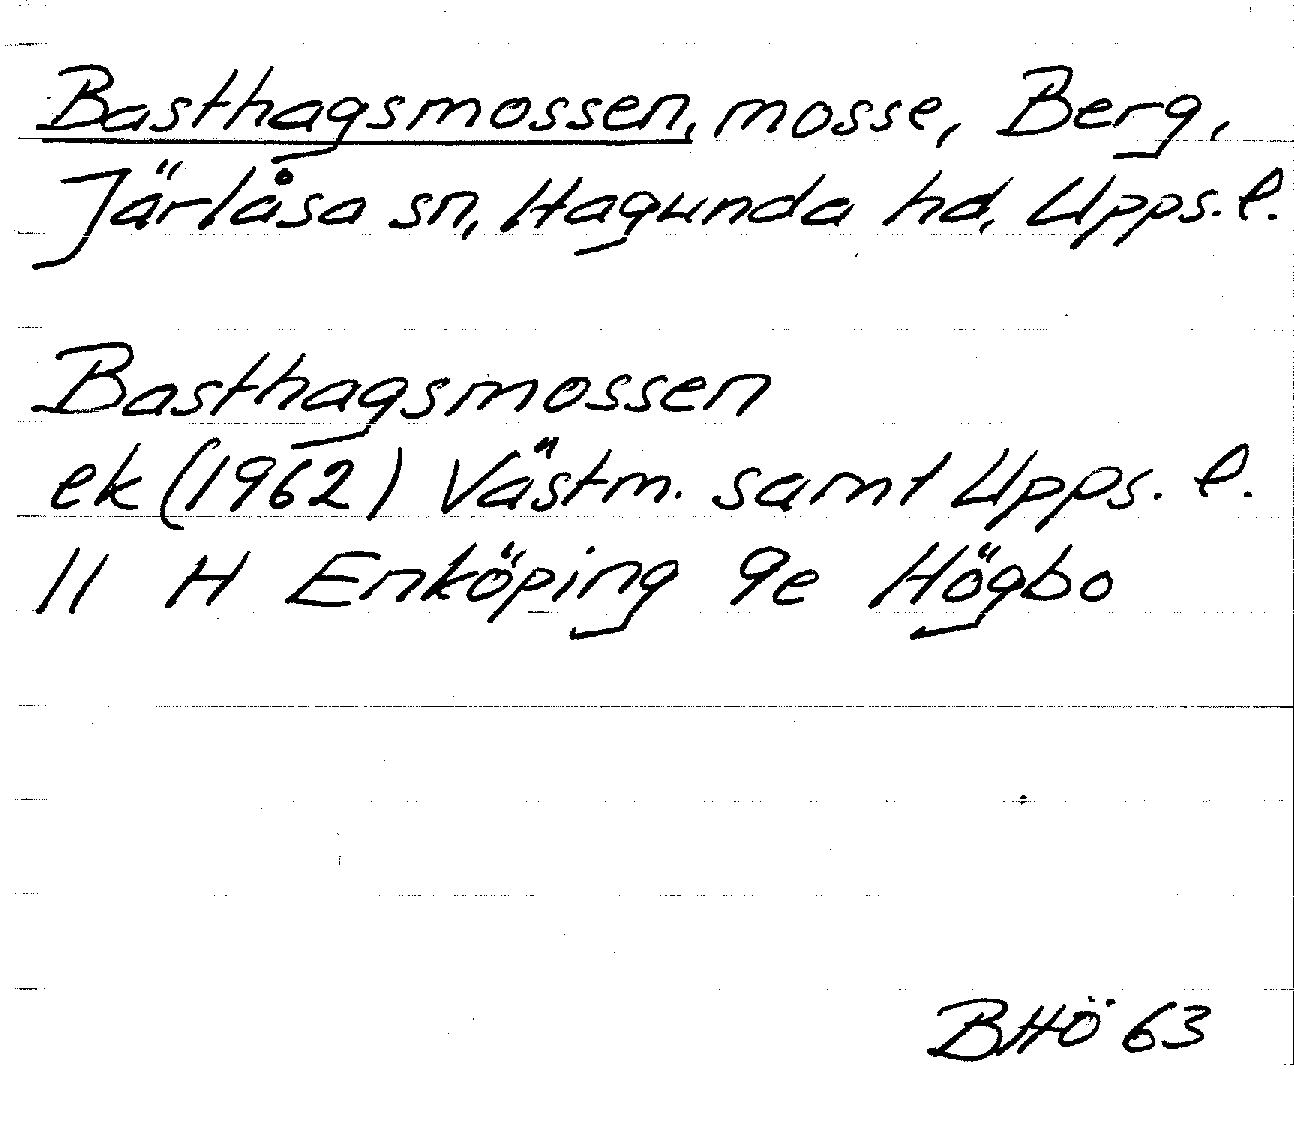 Basthagsmossen, mosse, Berg,
Järlåsa sn, Hagunda hd, Upps. l.
Basthagsmossen
ek (1962) Västm. samt Upps. l.
11 H Enköping 9e Högbo
BHÖ 63